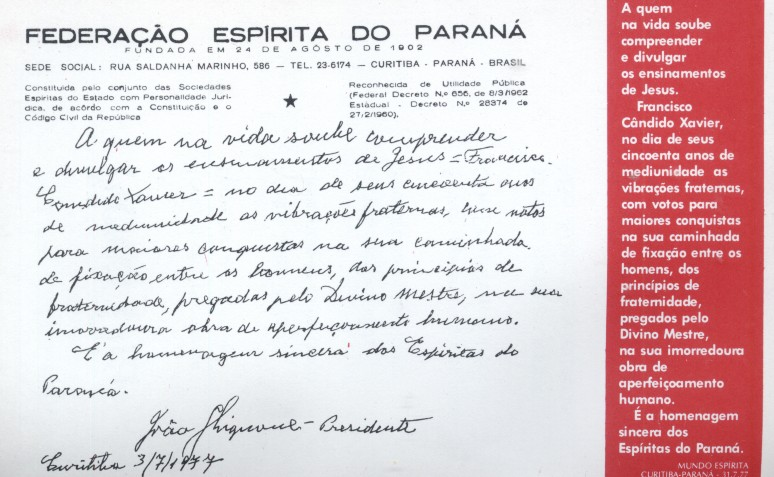 FEDERAÇÃO ESPÍRITA DO PARANÁ
FUNDADA EM 24 DE AGÔSTO DE 1902
SEDE SOCIAL: RUA SALDANHA MARINHO, 586 — TEL. 23-6174 — CURITIBA - PARANÁ - BRASIL
Constituida pelo conjunto das Sociedades
Espiritas do Estado com Personalidade Jurí-
dica, de acôrdo com a Constituição e o
Código Civil da República
Reconhecida de Utilidade Pública
(Federal Decreto N.o 656, de 8/3/1962
Estadual - Decreto N.o 26374 de
27/2/1960).
A quem na vida soube comprender
e divulgar os ensinamentos de Jesus = Francisco
Candido Xavier = no dia de seus cincoenta anos
de mediunidade as vibrações fraternas, com votos
para maiores conquistas na sua caminhada
de fixação entre os homens, dos princípios de
fraternidade, pregadas pelo Divino Mestre, na sua
imorredoura obra de aperfeiçoamento humano.
É a homenagem sincera dos Espíritas do
Paraná.
João Ghignone - Presidente
Curitiba 3/7/1977
A quem
na vida soube
compreender
e divulgar
os ensinamentos
de Jesus.
Francisco
Cândido Xavier,
no dia de seus
cincoenta anos de
mediunidade as
vibrações fraternas,
com votos para
maiores conquistas
na sua caminhada
de fixação entre os
homens, dos
princípios de
fraternidade,
pregados pelo
Divino Mestre,
na sua imorredoura
obra de
aperfeiçoamento
humano.
É a homenagem
sincera dos
Espíritas do Paraná.
MUNDO ESPÍRITA
CURITIBA-PARANÁ - 31.7.77